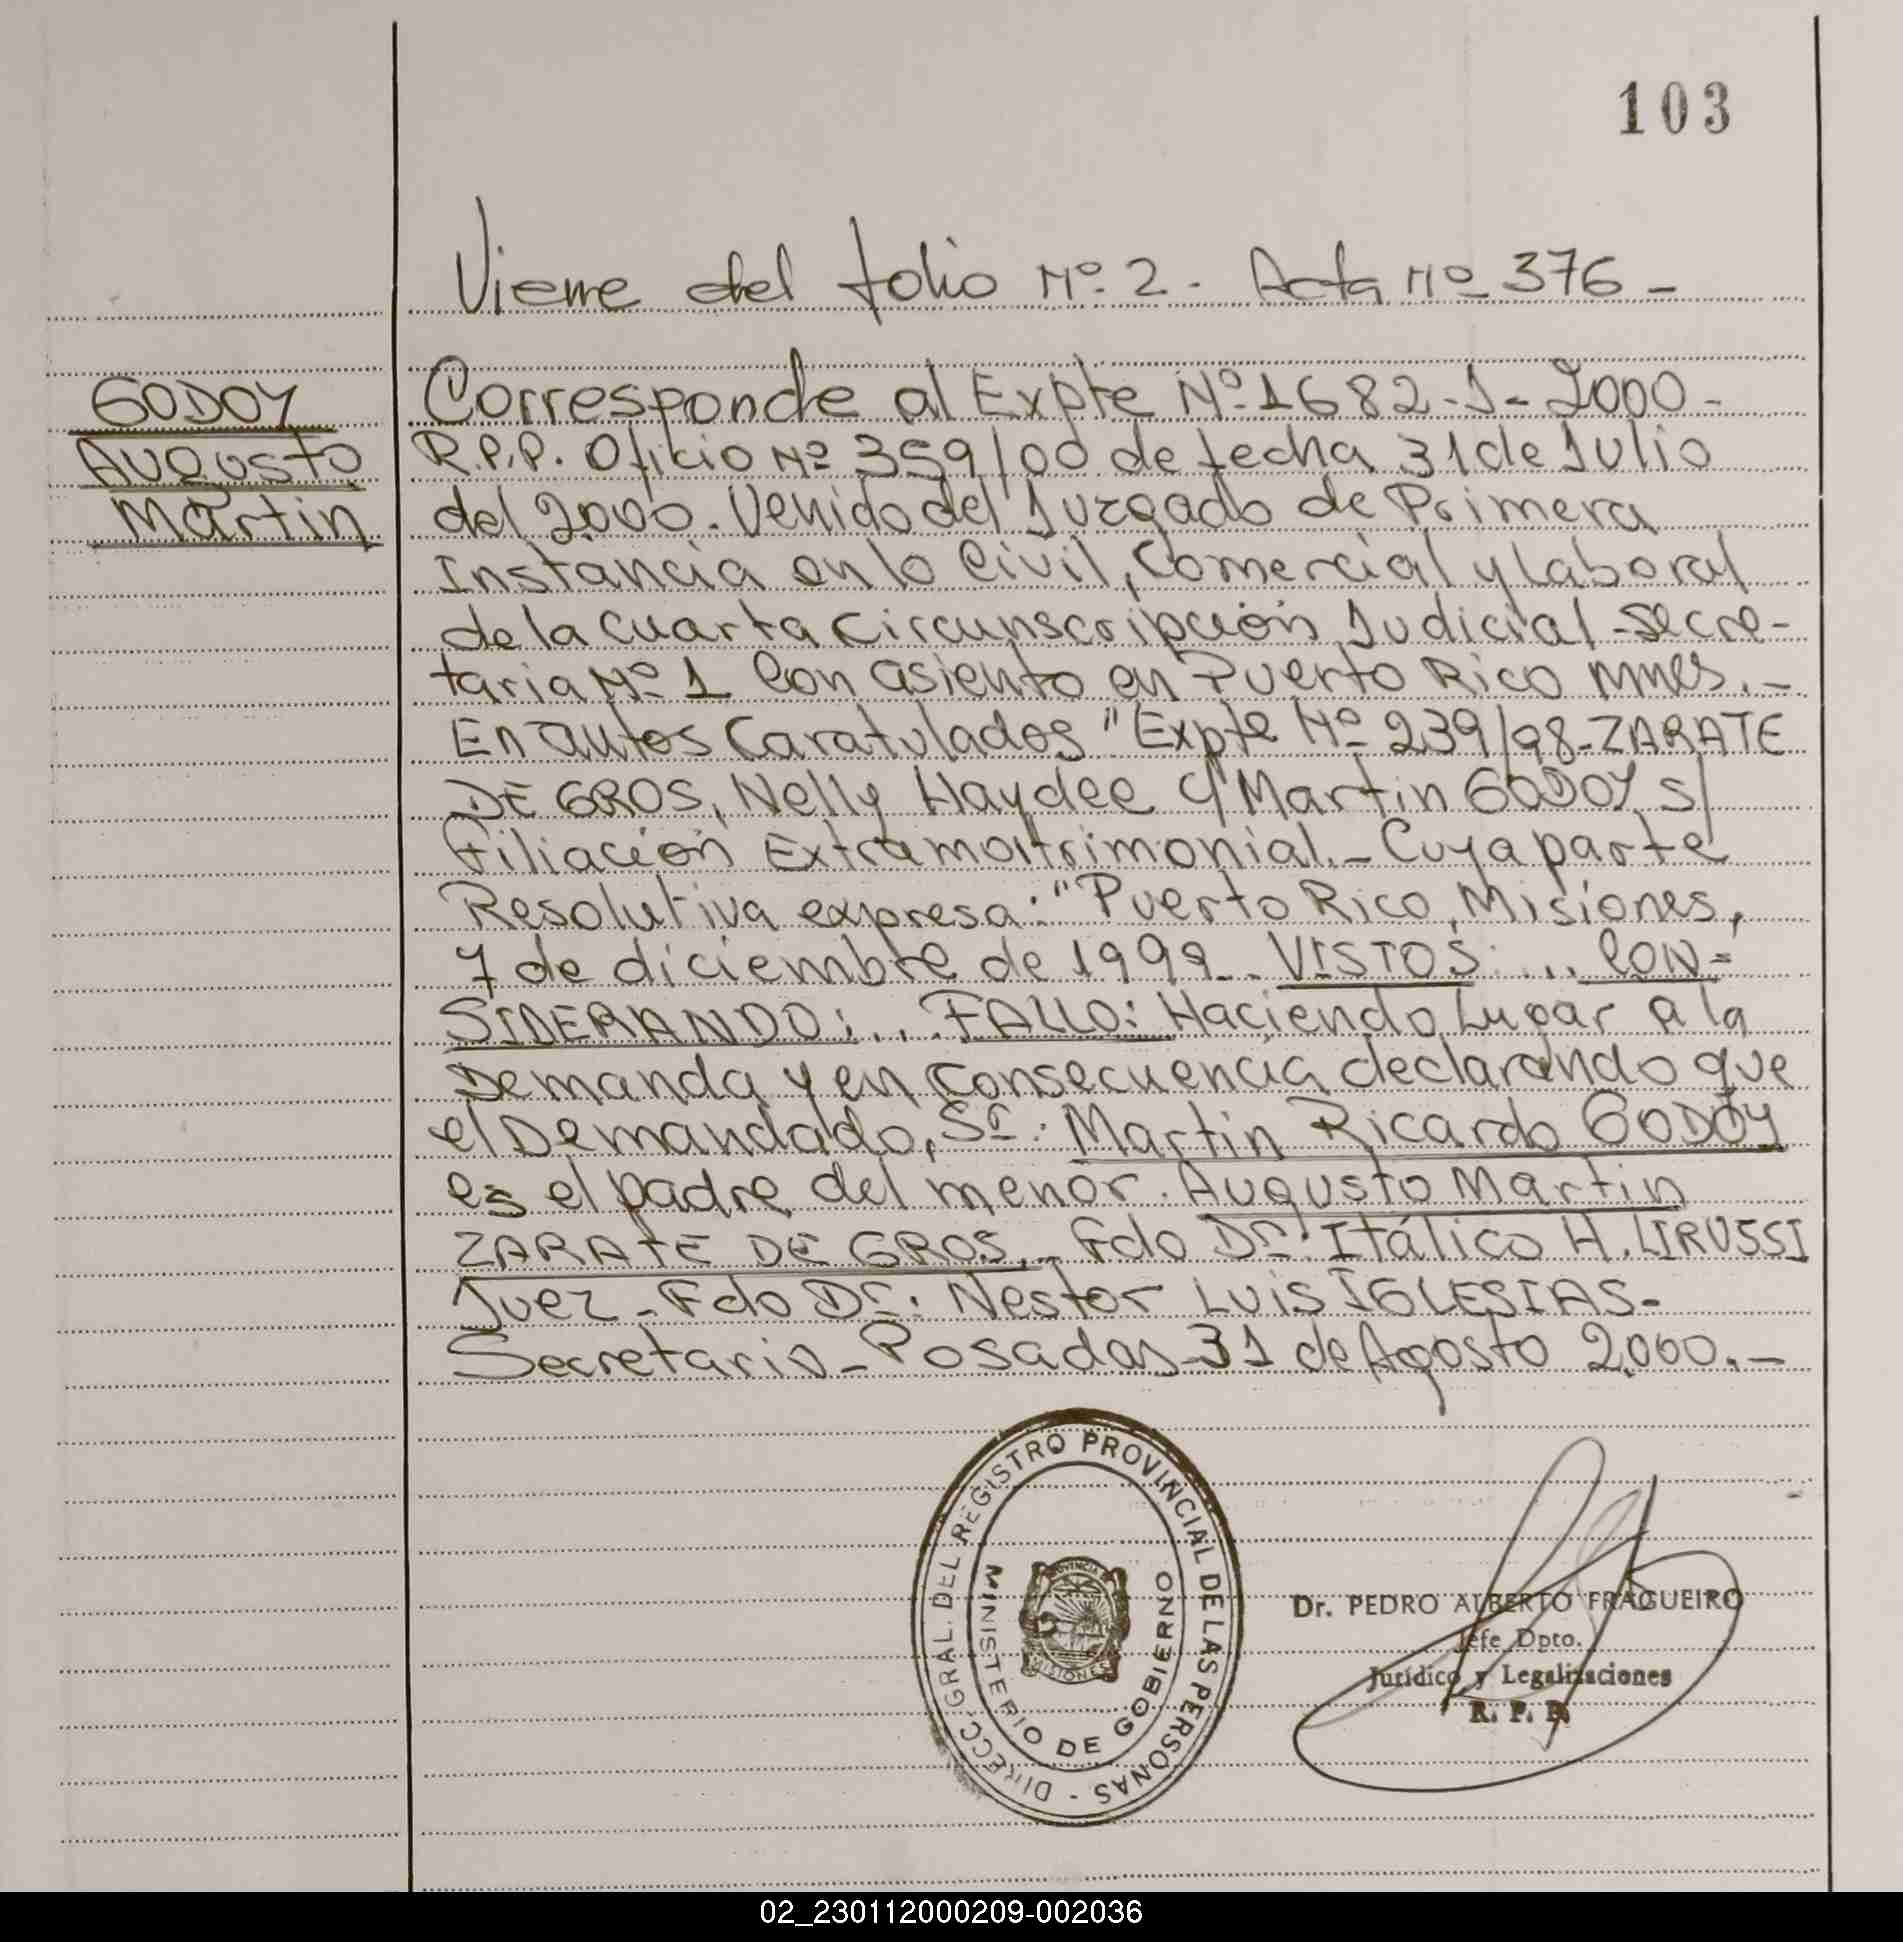 103
Viene del folio Nº 2. Acta Nº 376 -
GODOY
Augusto
Martin
Corresponde al Expte Nº 1682-J-2000-
R.P.P. Oficio Nº 359/00 de fecha 31 de Julio
del 2.000. Venido del Juzgado de Primera
Instancia en lo Civil, Comercial y Laboral
de la Cuarta Circunscripción Judicial - Secre-
taria Nº 1 Con asiento en Puerto Rico Mnes.-
En autos Caratulados "Expte Nº 239/98-ZARATE
DE GROS, Nelly Haydee c/ Martin GODOY s/
Filiación Extramatrimonial.- Cuya parte
Resolutiva expresa: "Puerto Rico, Misiones,
7 de diciembre de 1999.. VISTOS: ... CON=
SIDERANDO: ... FALLO: Haciendo Lugar a la
Demanda y en Consecuencia declarando que
el Demandado, Sr. Martin Ricardo GODOY
es el padre del menor. Augusto Martin
ZARATE DE GROS.- Fdo Dr. Itálico H. LIRUSSI
Juez - Fdo Dr. Nestor Luis IGLESIAS-
Secretario - Posadas 31 de Agosto 2.000.-
DIRECC. GRAL. DEL REGISTRO PROVINCIAL DE LAS PERSONAS -
MINISTERIO DE GOBIERNO
PROVINCIA
MISIONES
Dr. PEDRO ALBERTO FRAGUEIRO
Jefe Dpto.
Jurídico y Legalizaciones
R. P. P.
02_230112000209-002036